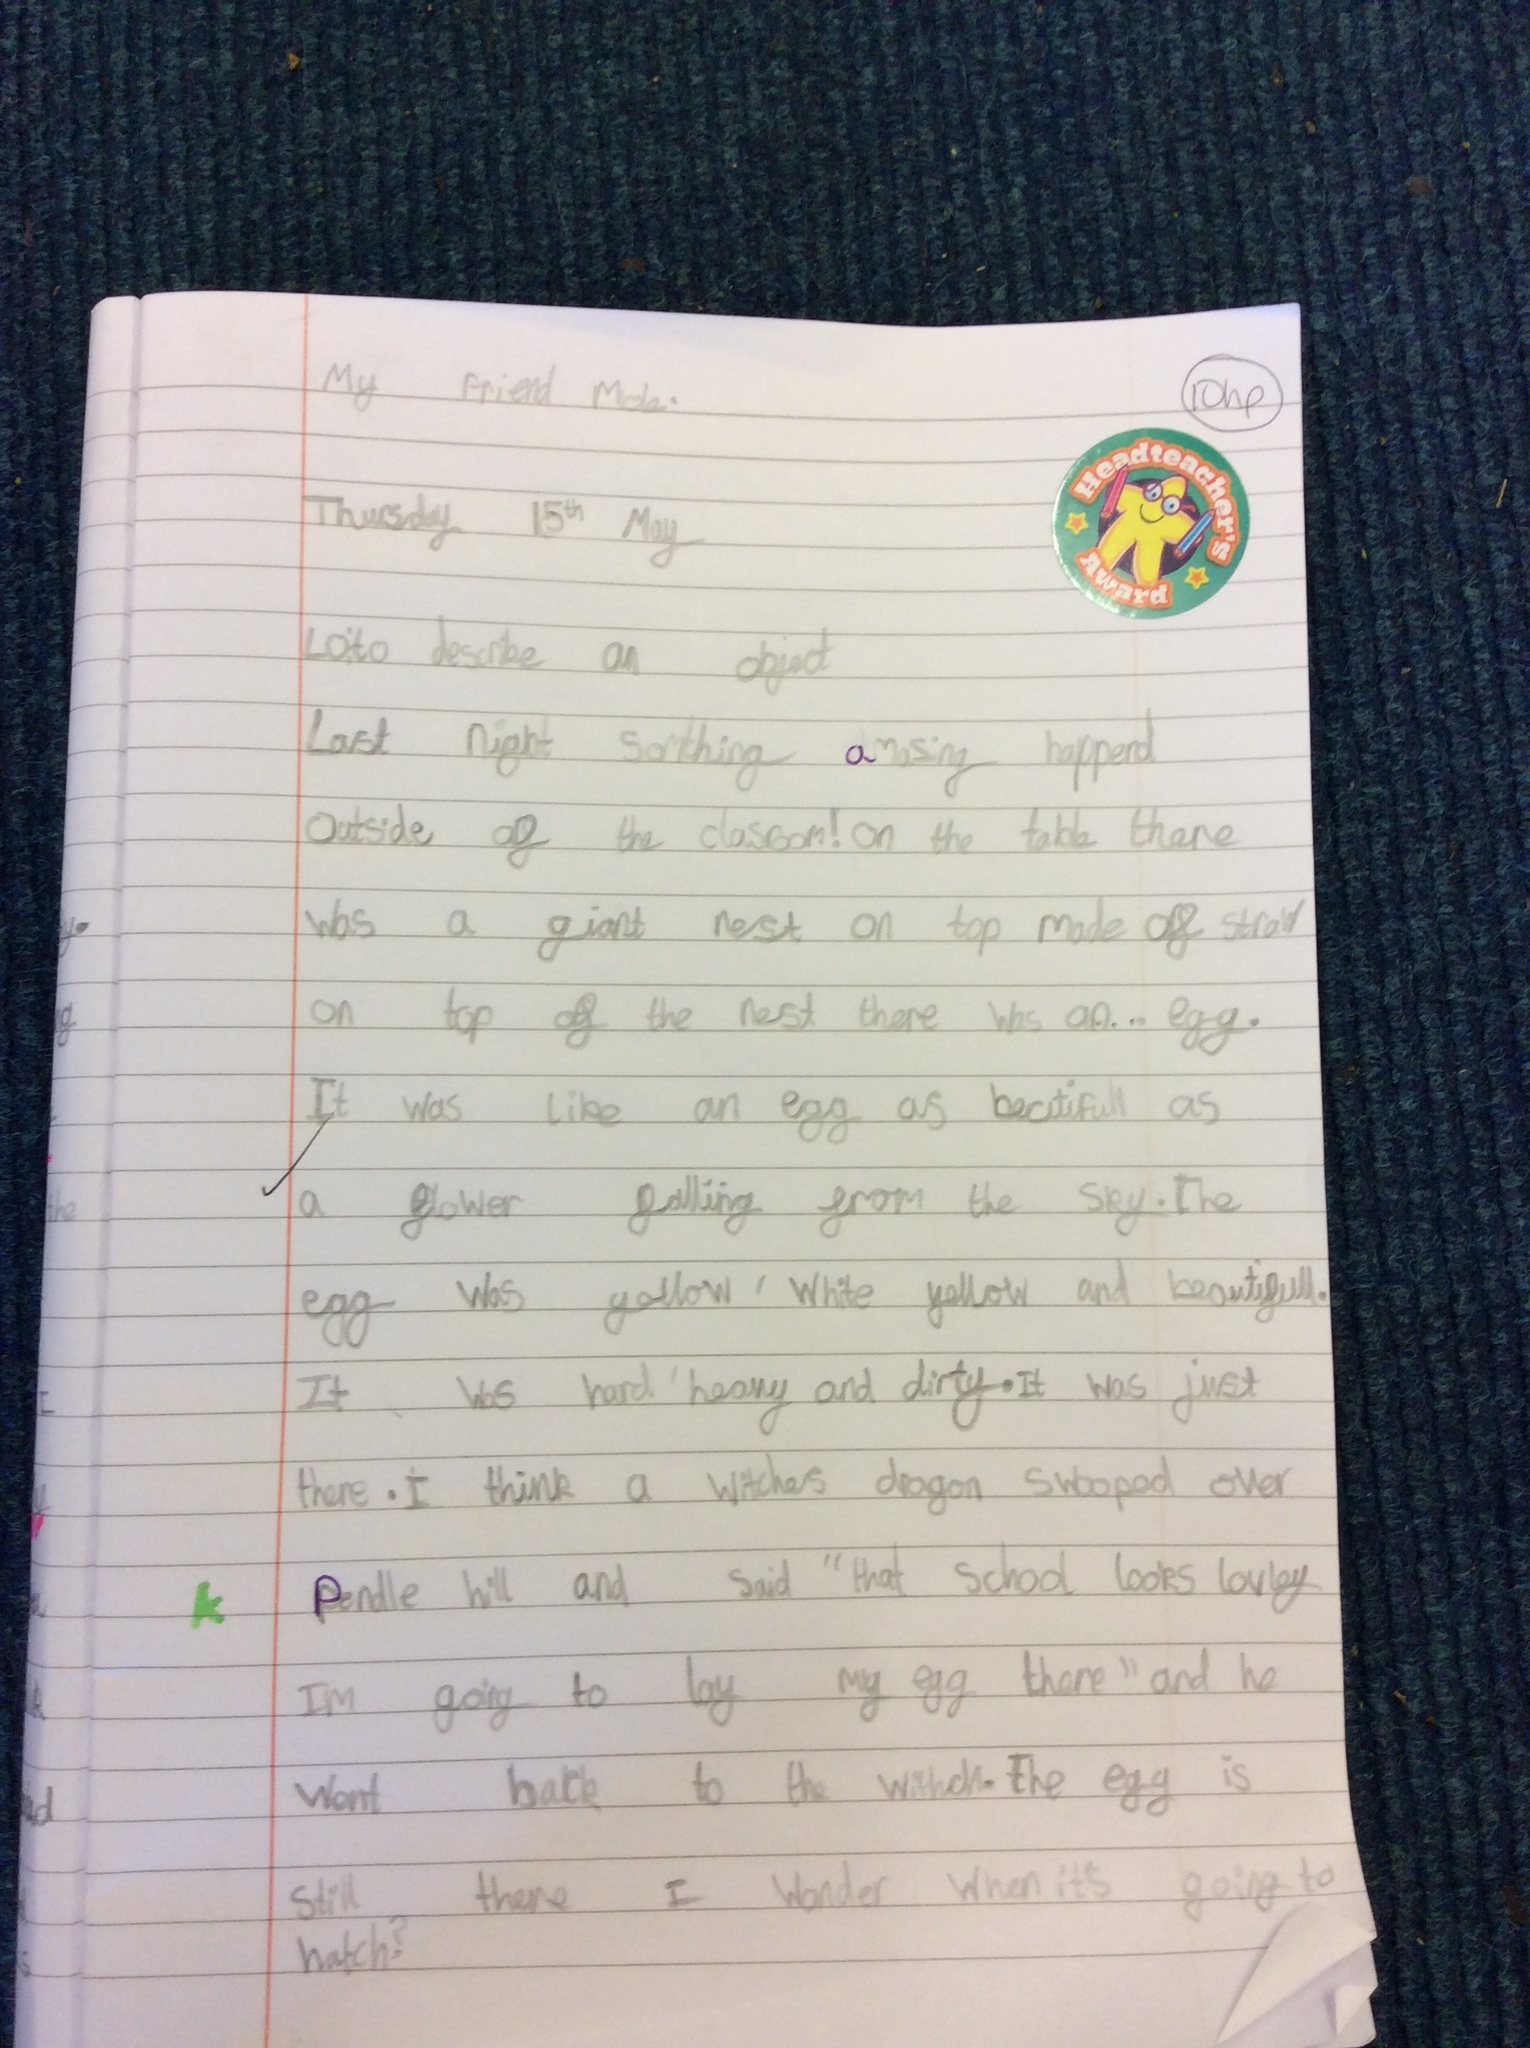 My Friend
10hp
Headteacher's
Award
Thursday 15th May
Lo:to describe an object
Last night somthing amasing happend
Outside of the classroom! on the table there
was a giant nest on top made of straw
on top of the nest there was an... egg.
It was like an egg as beautifull as
a flower falling from the sky. The
egg was yellow, white yellow and beautifull.
It was hard, heavy and dirty. It was just
there. I think a witches dragon swooped over
k
Pendle hill and said "that school looks lovley
Im going to lay my egg there" and he
went back to the withch. The egg is
still there I wonder when it's going to
hatch?
y.
g
the
I
ad